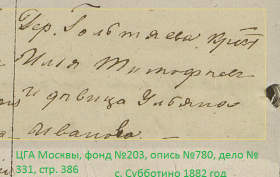 Дер. Гольтяева крест
Илья Тимофеев
и девица Ульяна
Иванова
ЦГА Москвы, фонд №203, опись №780, дело №
331, стр. 386
с. Субботино 1882 год